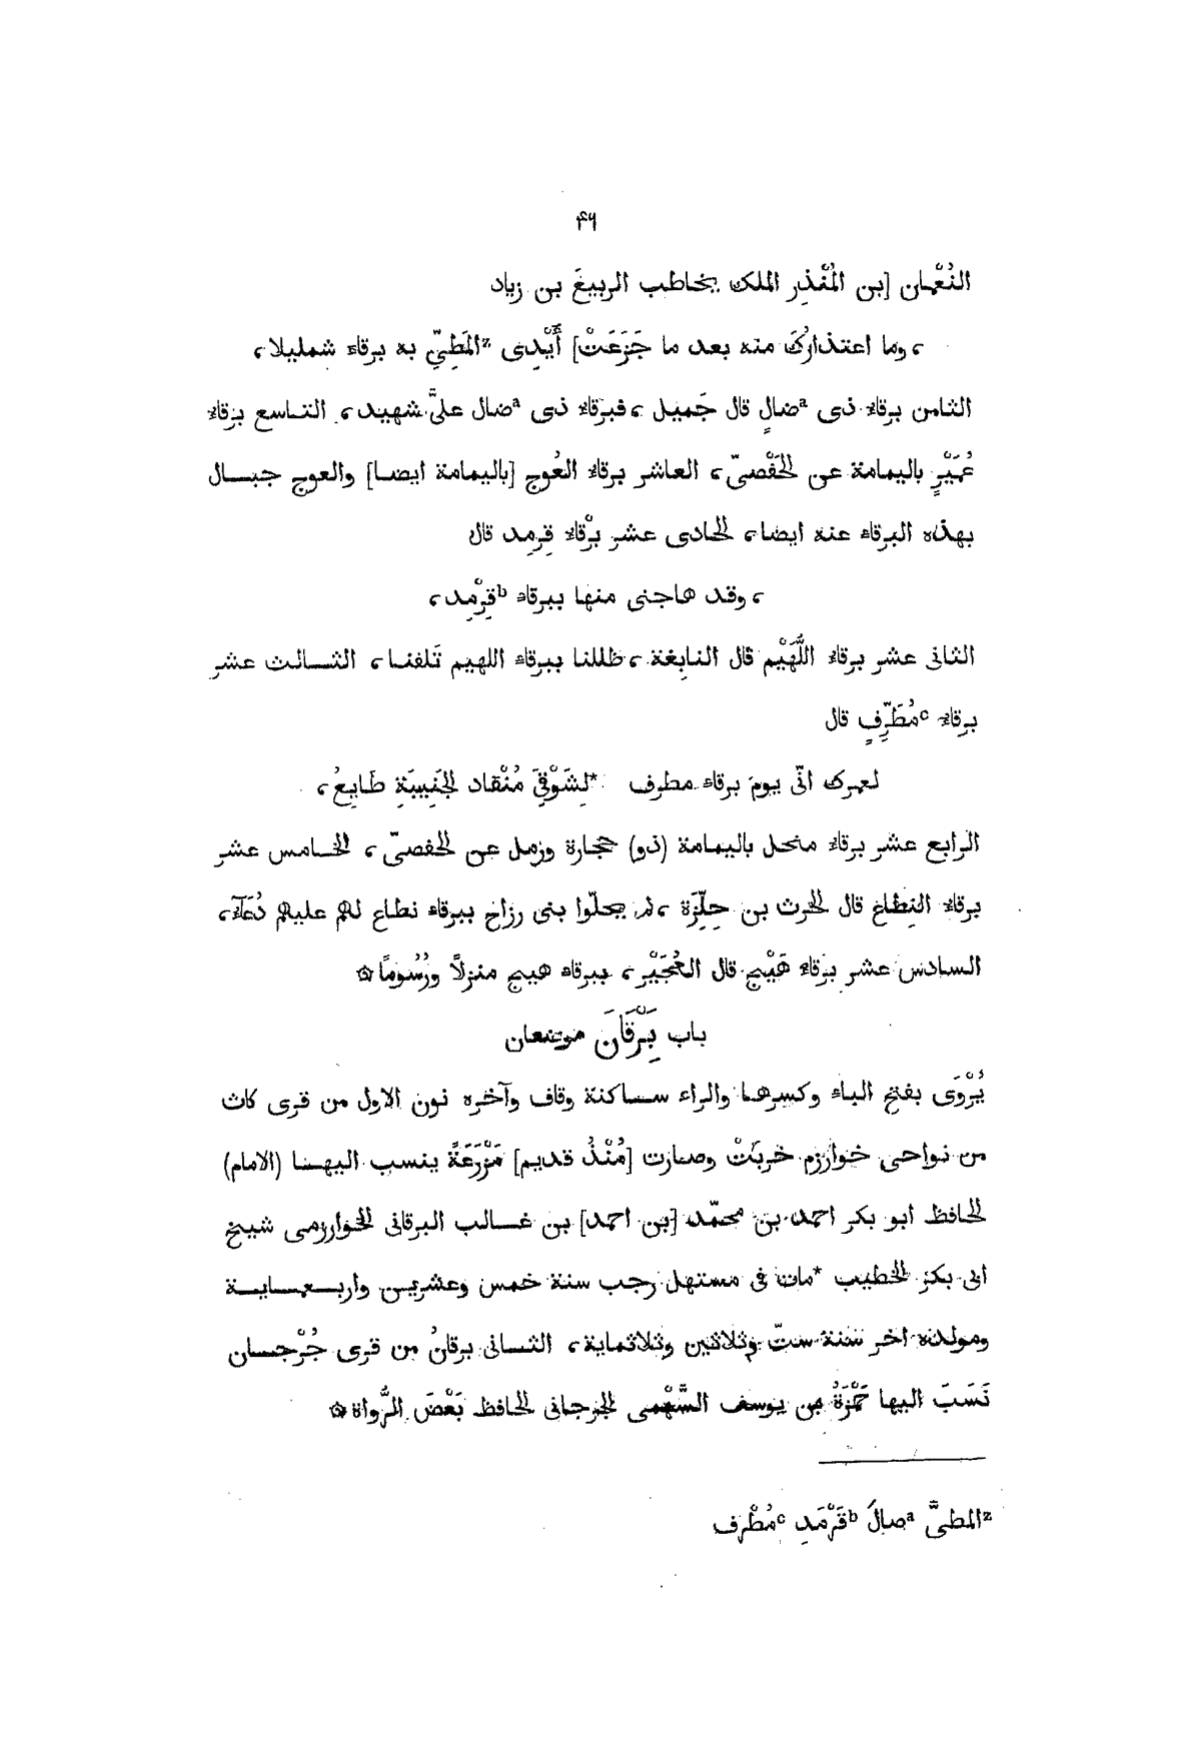 ٤٦
النُعْمان [بن المُنْذِر الملك يخاطب الربيعَ بن زياد
، وما اعتذارُكَ منه بعد ما جَزَعَتْ] أَيْدِى ᶻالمَطِىِّ به برقاء شمليلا،
الثامن برقاء ذى ᵃضالٍ قال جَميل ، فبرقاء ذى ᵃضال علىَّ شهيد، التاسع برقاء
عُمَيْرٍ باليمامة عن الحَفْصىّ، العاشر برقاء العُوج [باليمامة ايضا] والعوج جبال
بهذه البرقاء عنه ايضا، الحادى عشر برْقاء قِرمِد قال
، وقد هاجنى منها ببرقاء ᵇقِرْمِد،
الثانى عشر برقاء اللُّهَيْم قال النابغة ، ظللنا ببرقاء اللهيم تَلفنا، الثالث عشر
برقاء ᶜمُطَرِّفٍ قال
لعمرك انّى يومَ برقاء مطرف *لِشَوْقِىَ مُنْقاد الجَنِيبَةِ طَايِعُ،
الرابع عشر برقاء منحل باليمامة (ذو) حجارة ورمل عن الحفصىّ، الخامس عشر
برقاء النِطاع قال الحرث بن حِلِّزَة ، لم يحلّوا بنى رزاح ببرقاء نطاع لهم عليهم دُعَآء،
السادس عشر برْقاء هَيْج قال العُجَيْر، ببرقاء هيج منزلًا ورُسُومًا ۞
باب بَِرْقَان موضعان
يُرْوَى بفتح الباء وكسرها والراء ساكنة وقاف وآخره نون الاول من قرى كاث
من نواحى خوارزم خربَتْ وصارت [مُنْذُ قديم] مَزْرَعَةً ينسب اليها (الامام)
الحافظ ابو بكر احمد بن محمّد [بن احمد] بن غالب البرقانى الخوارزمى شيخ
ابى بكر الخطيب *مات فى مستهل رجب سنة خمس وعشرين واربعماية
ومولده اخر سنة ستّ وثلاثين وثلاثماية، الثانى برقانُ من قرى جُرْجان
نَسَبَ اليها حَمْزَةُ بن يوسف السَّهْمى الجرجانى الحافظ بَعْضَ الرُّواة ۞
ᶻالمطىَّ ᵃصالَ ᵇقَرْمَدِ ᶜمُطْرِف